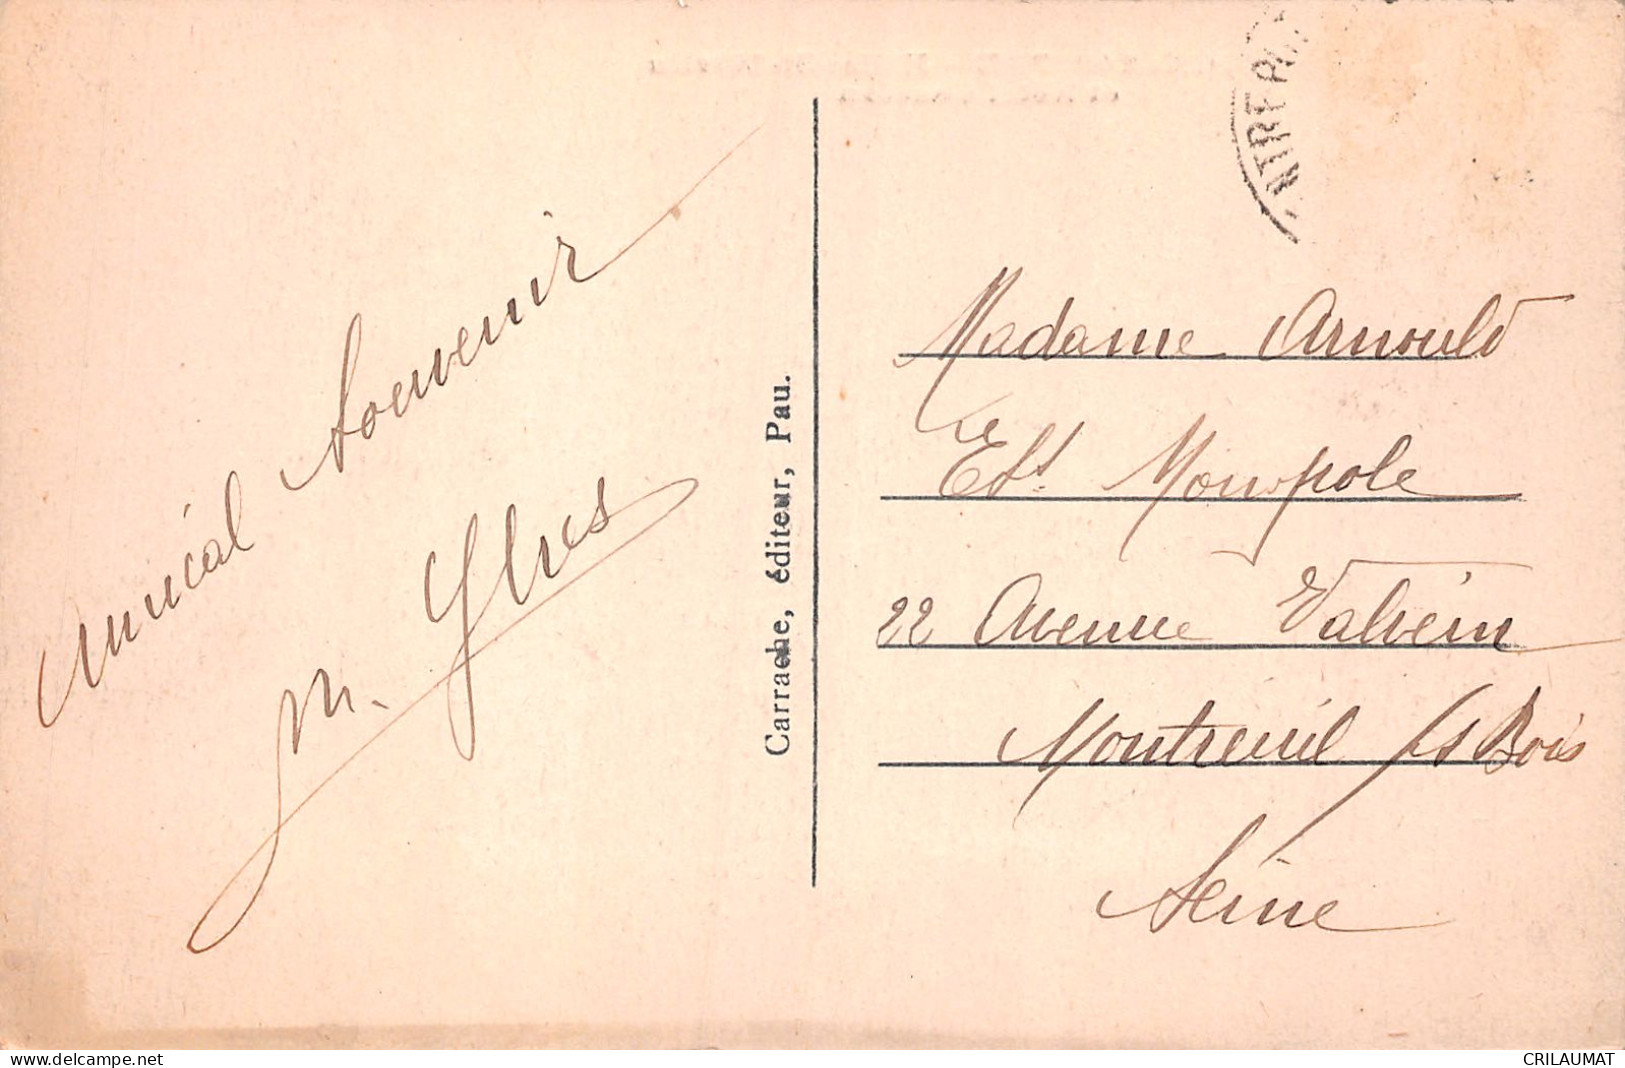 Amical Souvenir
M. Yves
Carrache, éditeur, Pau.
Madame Arnould
Ets. Monopole
22 Avenue Walwein
Montreuil s/s Bois
Seine
delcampe.net
CRILAUMAT